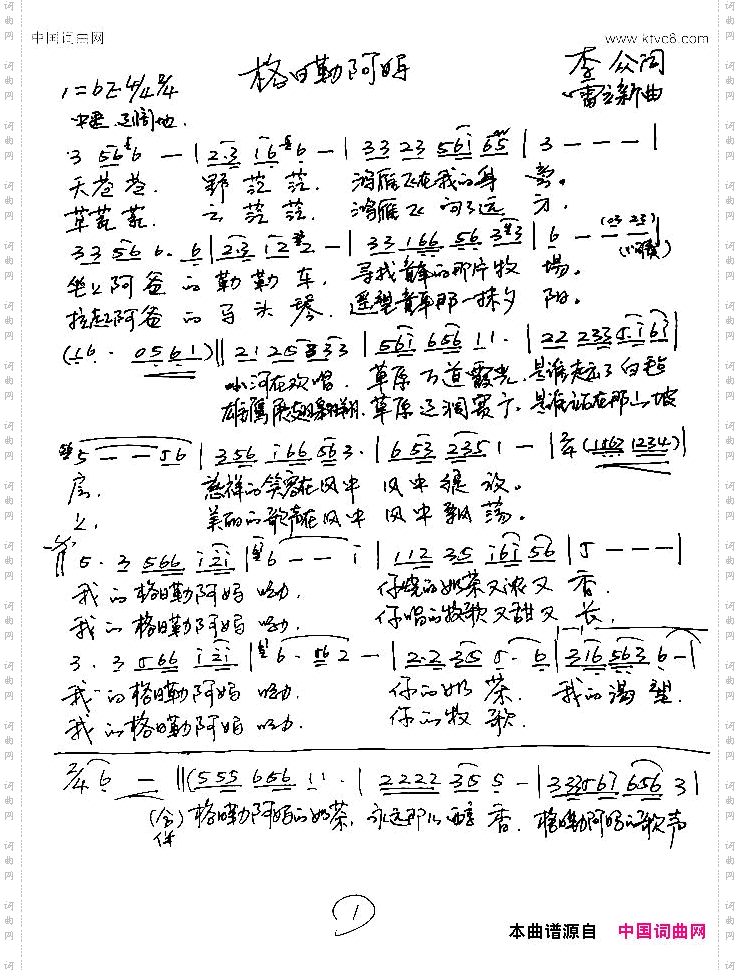 中国词曲网
www.ktvc8.com
格日勒阿妈
李众词
雷立新曲
1=bE 4/4 2/4
中速 辽阔地.
3 56 6 — | 2·3 i6 6 — | 33 23 56i 65 | 3 - - - |
天苍苍. 野茫茫. 鸿雁飞在我的身旁。
草荒荒. 云茫茫. 鸿雁飞向了远方.
33 56 6. 6 | 23 12 2 — | 33 166 56 3 | 6 — — (03 23)
坐上阿爸的勒勒车, 寻找童年的那片牧場。
拉起阿爸的马头琴. 遥望童年那一抹夕阳。
(16 · 0561) || 21 25 3 33 | 56i 656 11· | 22 233 5 i6i |
小河在欢唱. 草原万道霞光. 是谁走出了白毡
雄鹰展翅翱翔. 草原辽阔宽广. 是谁站在那山坡
5 - - 56 | 356 i66 563· | 6 53 235 1 - | 2/4 (1 1234) |
房. 慈祥的笑容在风中 风中绽放。
上. 美丽的歌声在风中 风中飘荡。
5 · 3 566 i2i | 6 - - i | 112 35 i6i 56 | 5 - - - |
我的格日勒阿妈哟. 你烧的奶茶又浓又香.
我的格日勒阿妈哟. 你唱的牧歌又甜又长.
3 · 3 566 i2i | 6 · 2 — | 2·2 35 5· 6 | 316 563 6 - |
我的格日勒阿妈哟. 你的奶茶. 我的渴望.
我的格日勒阿妈哟. 你的牧歌.
2/4 6 — || (555 656 11· | 2222 35 5 - | 333561 656 3 |
(合) 格日勒阿妈的奶茶, 永远那么醇香. 格日勒阿妈的歌声
伴
1
本曲谱源自 中国词曲网